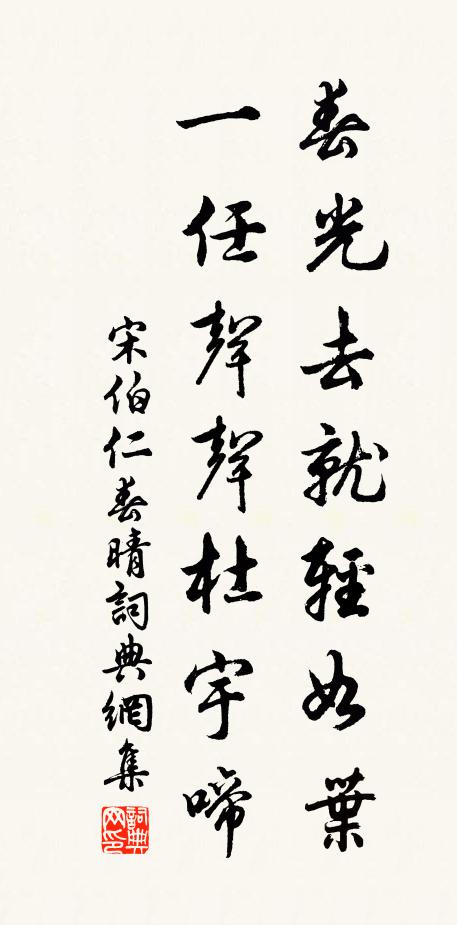 春光去就輕如葉
一任聲聲杜宇啼
宋伯仁春晴詞典網集
詞典網印